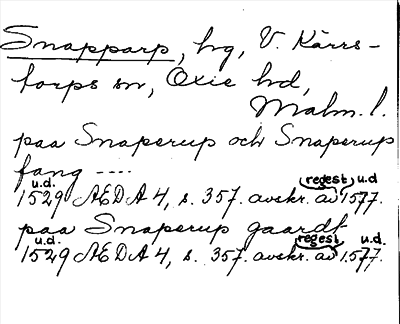 Snapparp, hg, V. Kärrs-
torps sn, Oxie hd,
Malm. l.
paa Snaperup och Snaperup
fang ----
u.d. regest u.d
1529 AEDA 4, s. 357. avskr. av 1577.
paa Snaperup gaardt
u.d. regest u.d.
1529 AEDA 4, s. 357. avskr. av 1577.